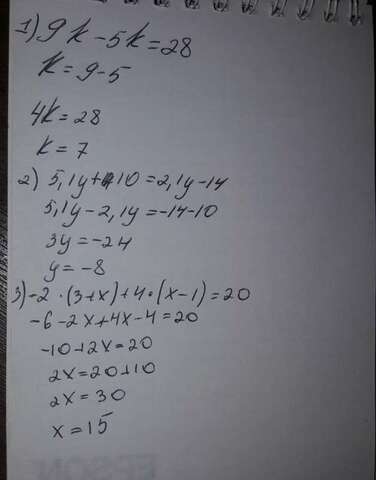 1) 9k-5k=28
k=9-5
4k=28
k=7
2) 5,1y+10=2,1y-14
5,1y-2,1y=-14-10
3y=-24
y=-8
3) -2·(3+x)+4·(x-1)=20
-6-2x+4x-4=20
-10+2x=20
2x=20+10
2x=30
x=15